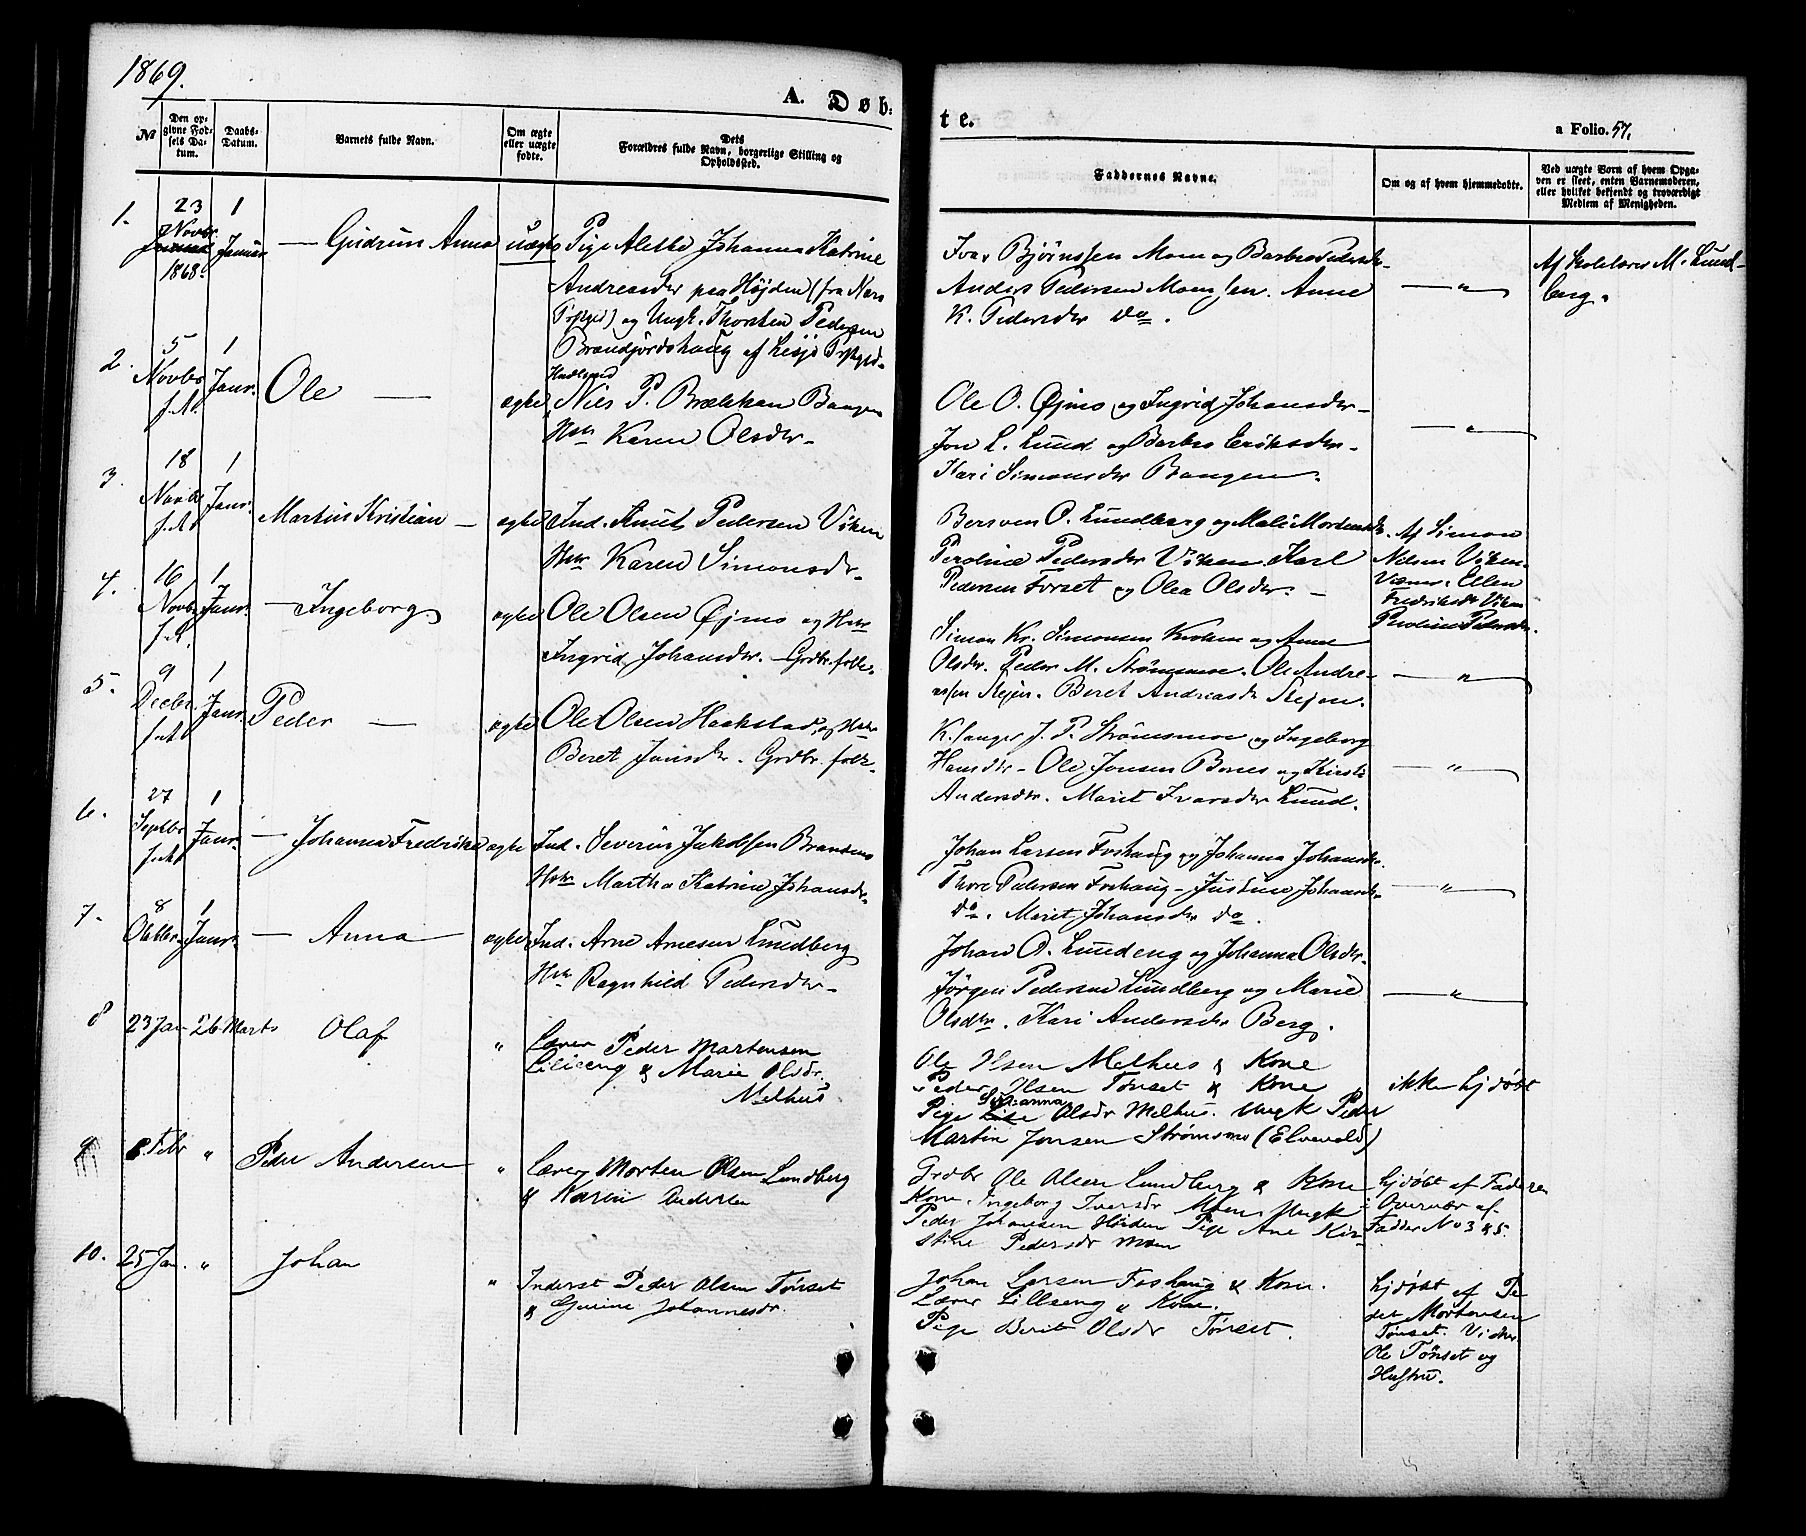 1869.
A. Døb-
te.
a Folio. 57.
№
Den op-
givne Fød-
sels Da-
tum.
Daabs-
Datum.
Barnets fulde Navn.
Om ægte
eller uægte
fødte.
Dets
Forældres fulde Navn, borgerlige Stilling og
Opholdssted.
Faddernes Navne.
Om og af hvem hjemmedøbte.
Ved uægte Børn af hvem Opga-
ven er skeet, enten Barnemoderen,
eller hvilket bekjendt og troværdigt
Medlem af Menigheden.
1.
23
Novbr.
1868.
1
Januar
— Gudrun Anna
uægte
Pige Alette Johanna Katrine
Andreasdr paa Højden (fra Nærø
Prgjd) og Ungk. Thorsten Pedersen
Brændjordshaug af Leksø Prgjd.
Ivar Bjørnssen Moen og Barbro Pedersdr.
Anders Pedersen Moen, Anne
K. Pedersdr do.
— " —
Af Skolelærer M. Lund-
berg.
2.
5
Novbr
f.A.
1
Janr.
Ole —
ægte
Niels P. Brækkan Bangen
Hstr Karen Olsdr.
Ole O. Øjmo og Ingrid Johansdr.
Jon L. Lund og Barbro Eriksdr.
Kari Simonsdr Bangen.
— " —
3.
18
Novbr
f.A.
1
Janr.
Martin Kristian —
ægte
Ind. Knut Pedersen Viken
Hstr Karen Simonsdr.
Bersven O. Lundberg og Mali Mortensdr.
Peroline Pedersdr Viken. Karl
Pedersen Forset og Olea Olsdr. —
Af Simon
Nilsen Viken.
Vidner: Ellen
Fredriksdr Viken
Peroline Pedersdr.
4.
16
Novbr
f.A.
1
Janr.
— Ingeborg
ægte
Ole Olsen Øjmo og Hstr
Ingrid Johansdr. — Grdbr.folk.
Simon Kr. Simonsen Krokem og Anne
Olsdr. Peder M. Strømsmoe. Ole Andre-
assen Rejen. Beret Andreasdr Rejen.
— " —
5.
9
Decbr.
f.A.
1
Janr.
Peder —
ægte
Ole Olsen Haakstad og Hstr
Beret Jonsdr. Grdbr.folk.
K.sanger J. P. Strømsmoe og Ingeborg
Hansdr. Ole Jonsen Bones og Kirsti
Andersdr. Marit Ivarsdr Lund.
— " —
6.
27
Septbr
f.A.
1
Janr.
— Johanna Fredrikke
ægte
Ind. Severin Jakobsen Brandmo
Hstr Martha Katrine Johansdr.
Johan Larsen Foshaug og Johanna Johansdr.
Thore Pedersen Foshaug — Justine Johansdr.
do. Marit Johansdr do.
— " —
7.
8
Oktbr.
1
Janr.
— Anna
ægte
Ind. Arne Arnesen Lundberg
Hstr Ragnhild Pedersdr.
Johan A. Lundeng og Johanna Olsdr.
Jørgen Pedersen Lundberg og Marie
Olsdtr. Kari Andersdr Berg.
— " —
8
23 Jan
26 Marts
Olaf
"
Lærer Peder Martensen
Lilleeng & Marie Olsdr.
Melhus
Ole Olsen Melhus & Kone
Peder Olsen Tønset & Kone
Susanna
Pige Olsdr Melhus. Ungk Peder
Martin Jonsen Strømsmo (Elvevold)
ikke hjdøbt
9
8. Febr
"
Peder Andersen
"
Lærer Morten Olsen Lundberg
& Karen Andersen
Grdbr Ole Olsen Lundberg & Kone
Kone Ingeborg Iversdr Moen, Ungk
Peder Johansen Høiden Pige Ane Kir-
stine Pedersdr Moen
hjdøbt af Faderen
i Overvær af
Fadder No 3 & 5.
10.
25 Jan.
"
Johan
"
Inderst Peder Olsen Tønset
& Gurine Johannesdr.
Johan Larsen Foshaug & Kone.
Lærer Lilleeng " Kone.
Pige Berit Olsdr Tønset.
hjdøbt af Pe-
der Mortensen
Tønset. Vidner
Ole Tønset og
Hustru.